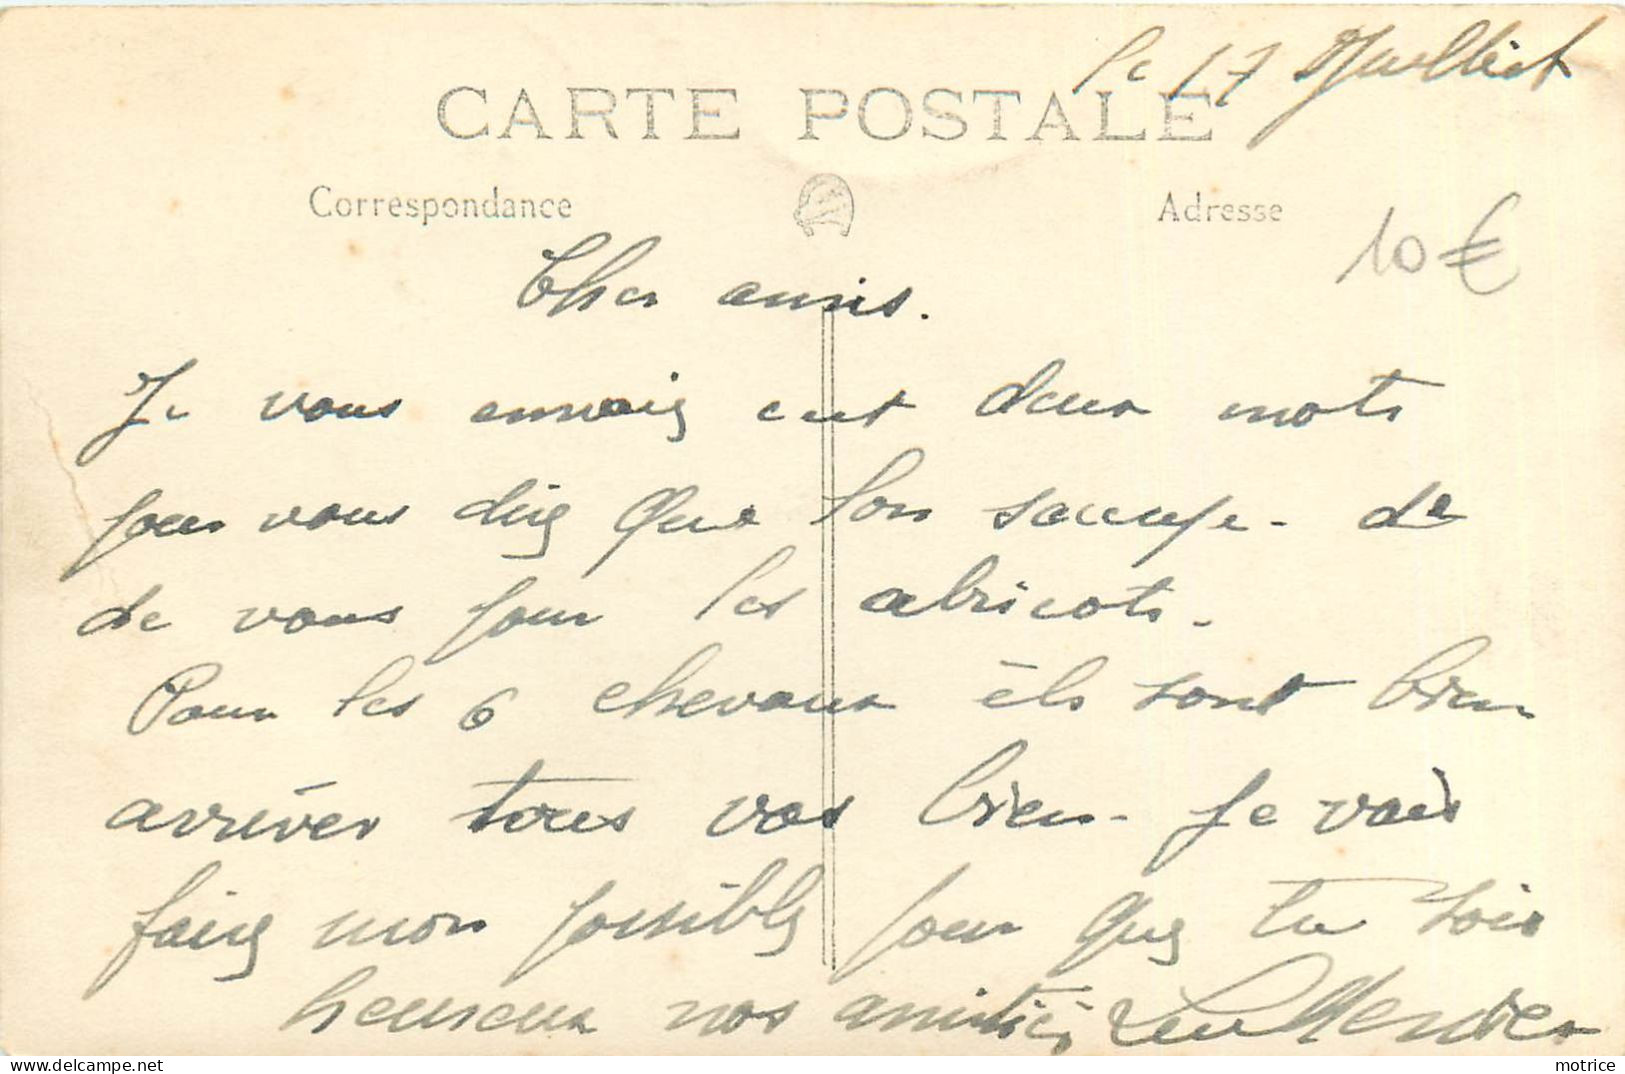 le 17 Juilliet
CARTE POSTALE
Correspondance
Adresse
10 €
Cher amis.
Je vous envoie cet deux mots
pour vous dire que l'on s'accupe - de
de vous pour les abricots.
Pour les 6 chevaux ils sont bien
arriver tous vas bien. Je vais
faire mon possible pour que tu sois
heureux nos amitiés
delcampe.net
motrice